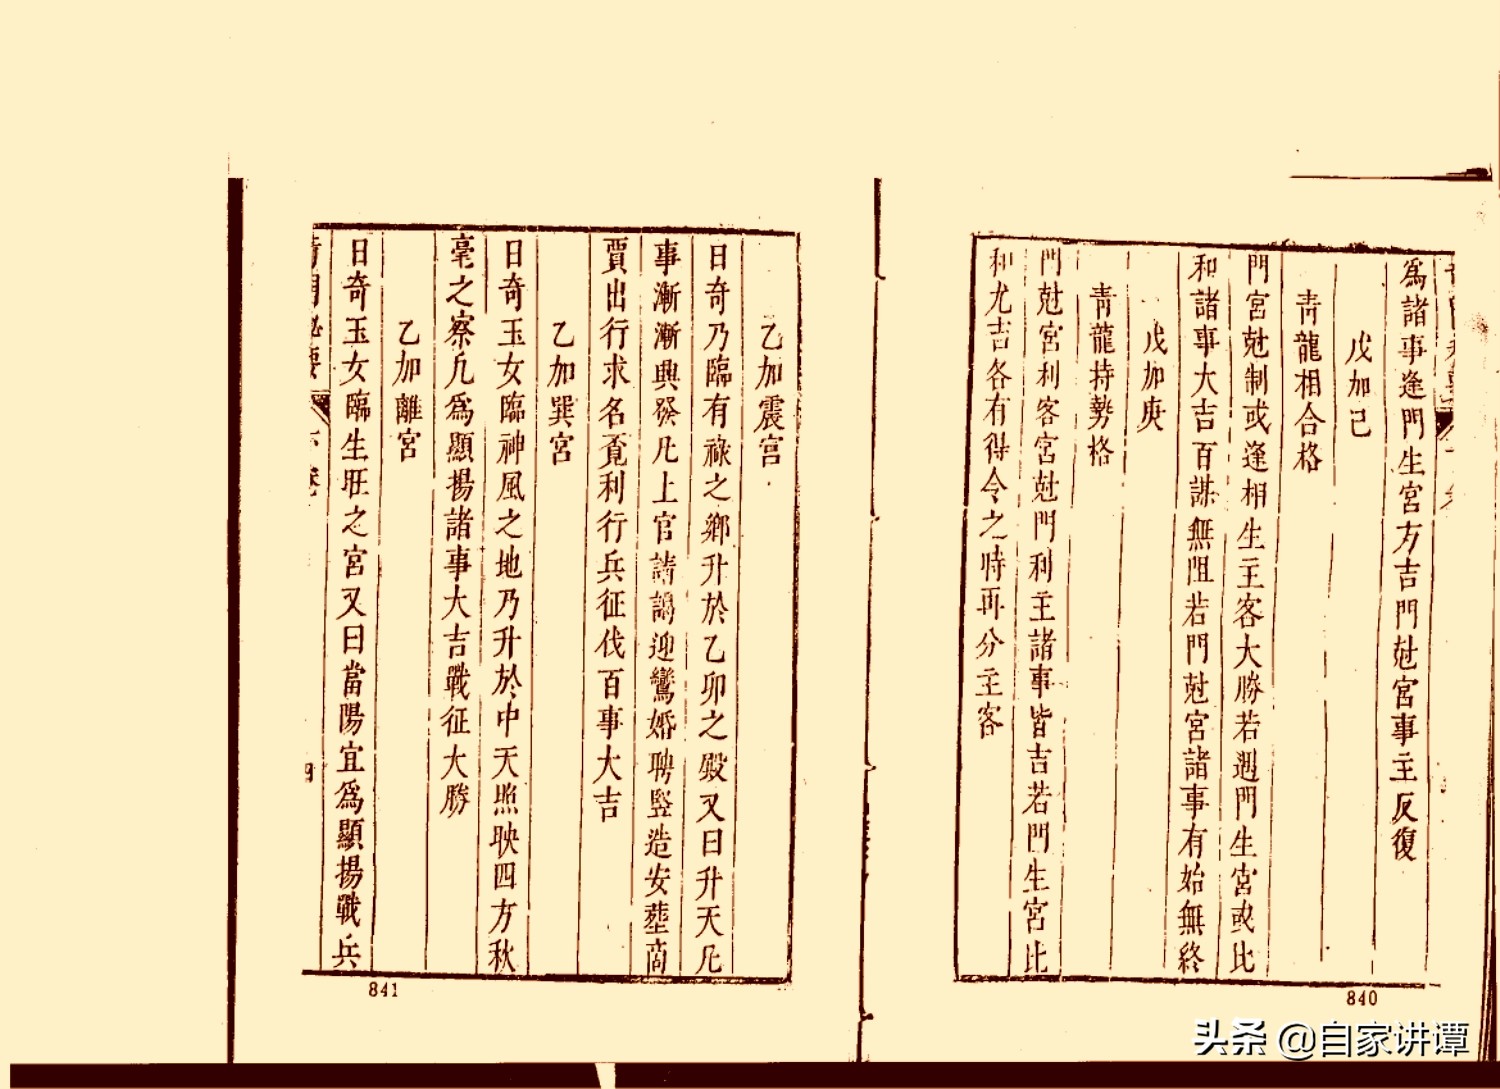 為諸事逢門生宮方吉門尅宮事主反復
戊加己
青龍相合格
門宮尅制或逢相生主客大勝若遇門生宮或比
和諸事大吉百謀無阻若門尅宮諸事有始無終
戊加庚
青龍持勢格
門尅宮利客宮尅門利主諸事皆吉若門生宮比
和尤吉各有得令之時再分主客
840
乙加震宮
日奇乃臨有祿之鄉升於乙卯之殿又曰升天凡
事漸漸興發凡上官請謁迎鸞婚聘竪造安塟啇
賈出行求名覔利行兵征伐百事大吉
乙加巽宮
日奇玉女臨神風之地乃升於中天照映四方秋
毫之察凡為顯揚諸事大吉戰征大勝
乙加離宮
日奇玉女臨生旺之宮又曰當陽宜為顯揚戰兵
四
841
头条 @自家讲谭